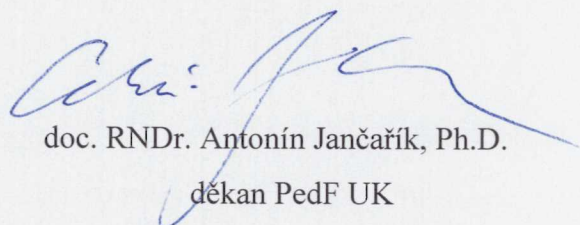 doc. RNDr. Antonín Jančařík, Ph.D.
děkan PedF UK